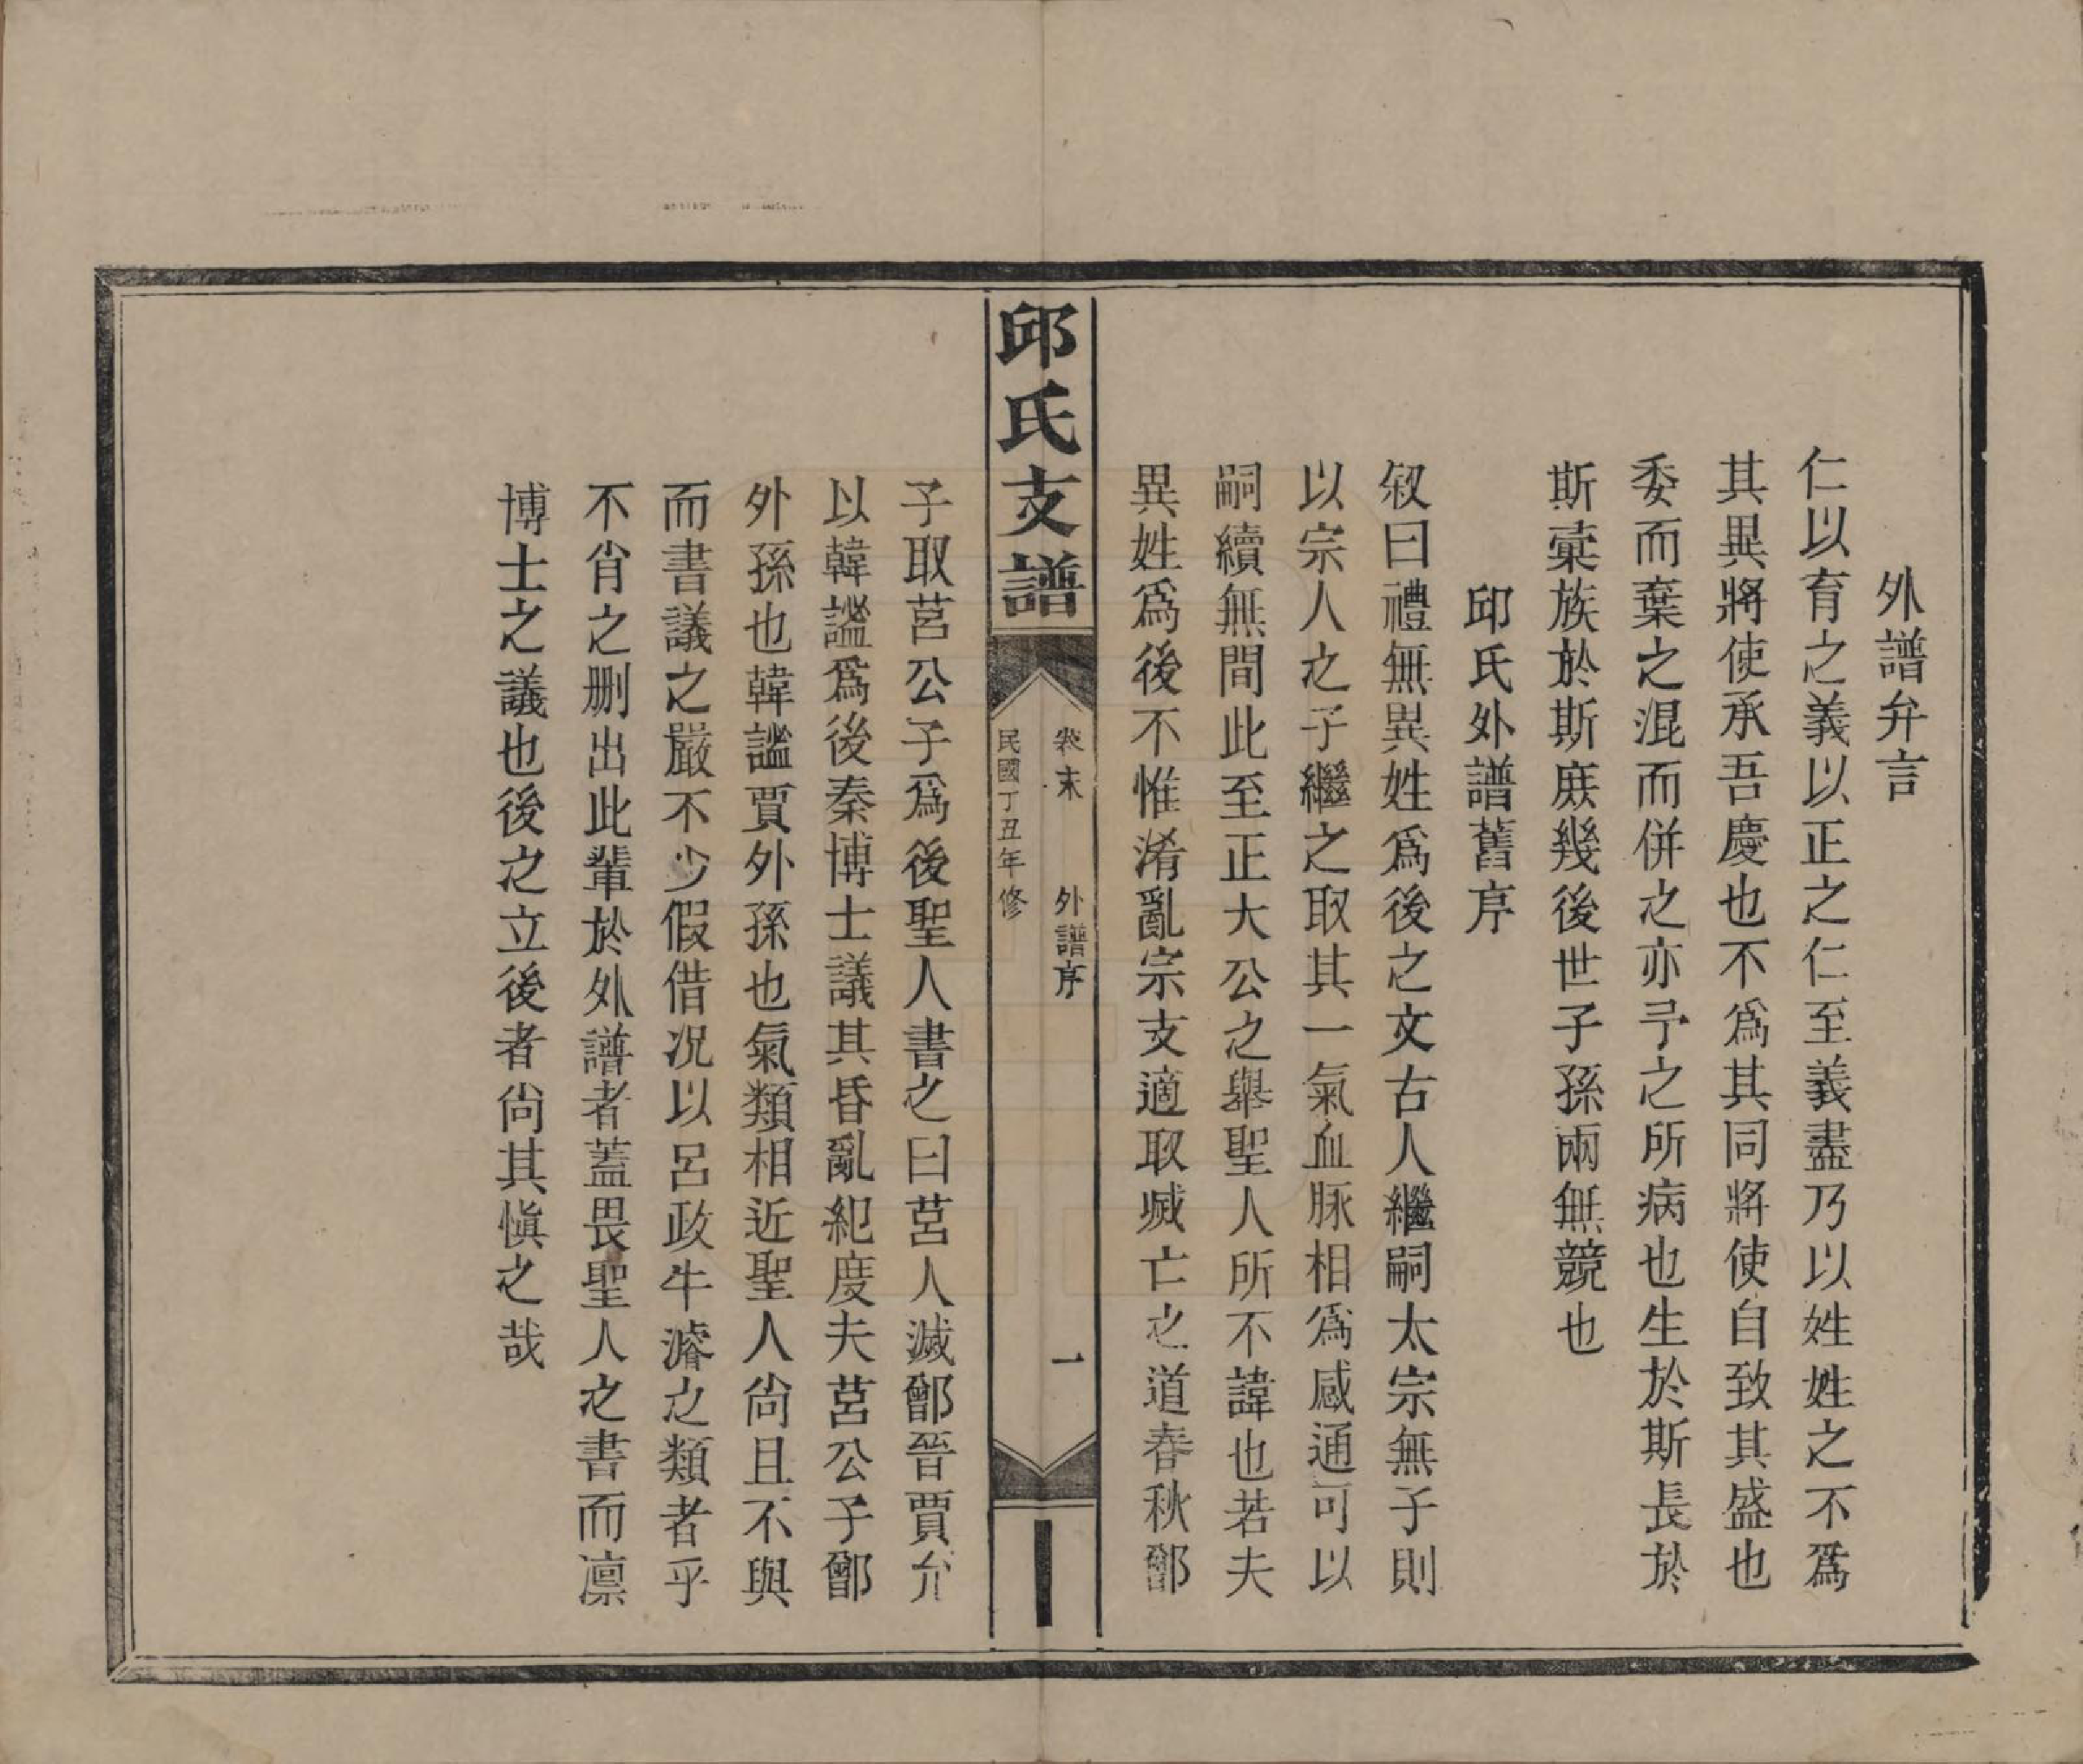 外譜弁言
仁以育之義以正之仁至義盡乃以姓姓之不爲
其異將使承吾慶也不爲其同將使自致其盛也
委而棄之混而併之亦予之所病也生於斯長於
斯彙族於斯庻幾後世子孫兩無競也
邱氏外譜舊序
叙曰禮無異姓爲後之文古人繼嗣太宗無子則
以宗人之子繼之取其一氣血脉相爲感通可以
嗣續無間此至正大公之舉聖人所不諱也若夫
異姓爲後不惟淆亂宗支適取滅亡之道春秋鄫
邱氏支譜
卷末 外譜序 一
民國丁丑年修
子取莒公子爲後聖人書之曰莒人滅鄫晉賈充
以韓謐爲後秦博士議其昏亂紀度夫莒公子鄫
外孫也韓謐賈外孫也氣類相近聖人尙且不與
而書議之嚴不少假借况以呂政牛濬之類者乎
不肖之删出此輩於外譜者蓋畏聖人之書而凛
博士之議也後之立後者尙其愼之哉